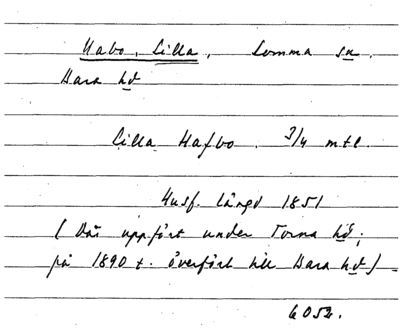 Habo, Lilla, Lomma sn.
Bara hd
Lilla Hafbo. 3/4 mtl.
Husf. längd 1851
(Där uppfört under Torna hd;
på 1890 t. överfört till Bara hd)
6052.